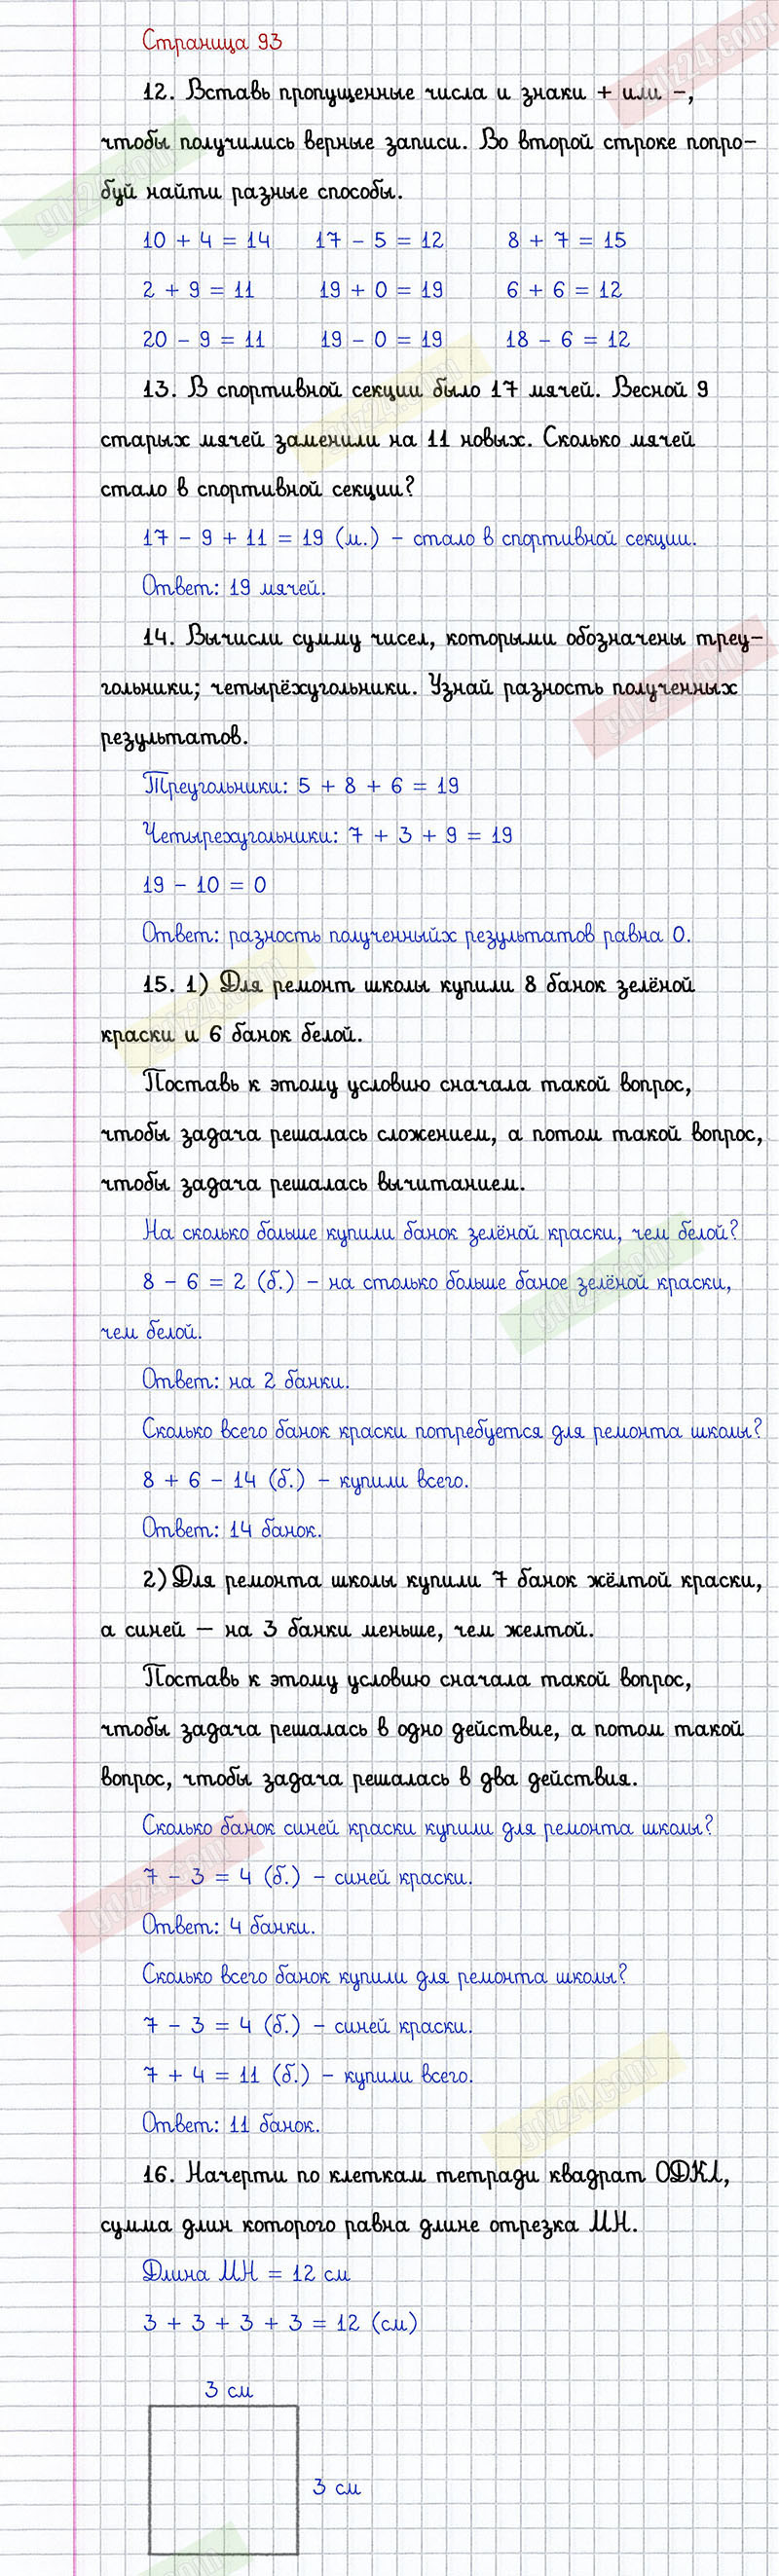 Страница 93
12. Вставь пропущенные числа и знаки + или -,
чтобы получились верные записи. Во второй строке попро-
буй найти разные способы.
10 + 4 = 14 17 - 5 = 12 8 + 7 = 15
2 + 9 = 11 19 + 0 = 19 6 + 6 = 12
20 - 9 = 11 19 - 0 = 19 18 - 6 = 12
13. В спортивной секции было 17 мячей. Весной 9
старых мячей заменили на 11 новых. Сколько мячей
стало в спортивной секции?
17 - 9 + 11 = 19 (м.) - стало в спортивной секции.
Ответ: 19 мячей.
14. Вычисли сумму чисел, которыми обозначены треу-
гольники; четырёхугольники. Узнай разность полученных
результатов.
Треугольники: 5 + 8 + 6 = 19
Четырехугольники: 7 + 3 + 9 = 19
19 - 10 = 0
Ответ: разность полученныйх результатов равна 0.
15. 1) Для ремонт школы купили 8 банок зелёной
краски и 6 банок белой.
Поставь к этому условию сначала такой вопрос,
чтобы задача решалась сложением, а потом такой вопрос,
чтобы задача решалась вычитанием.
На сколько больше купили банок зелёной краски, чем белой?
8 - 6 = 2 (б.) - на столько больше баное зелёной краски,
чем белой.
Ответ: на 2 банки.
Сколько всего банок краски потребуется для ремонта школы?
8 + 6 - 14 (б.) - купили всего.
Ответ: 14 банок.
2) Для ремонта школы купили 7 банок жёлтой краски,
а синей — на 3 банки меньше, чем желтой.
Поставь к этому условию сначала такой вопрос,
чтобы задача решалась в одно действие, а потом такой
вопрос, чтобы задача решалась в два действия.
Сколько банок синей краски купили для ремонта школы?
7 - 3 = 4 (б.) - синей краски.
Ответ: 4 банки.
Сколько всего банок купили для ремонта школы?
7 - 3 = 4 (б.) - синей краски.
7 + 4 = 11 (б.) - купили всего.
Ответ: 11 банок.
16. Начерти по клеткам тетради квадрат ОДКЛ,
сумма длин которого равна длине отрезка МН.
Длина МН = 12 см
3 + 3 + 3 + 3 = 12 (см)
3 см
3 см
gdz24.com
gdz24.com
gdz24.com
gdz24.com
gdz24.com
gdz24.com
gdz24.com
gdz24.com